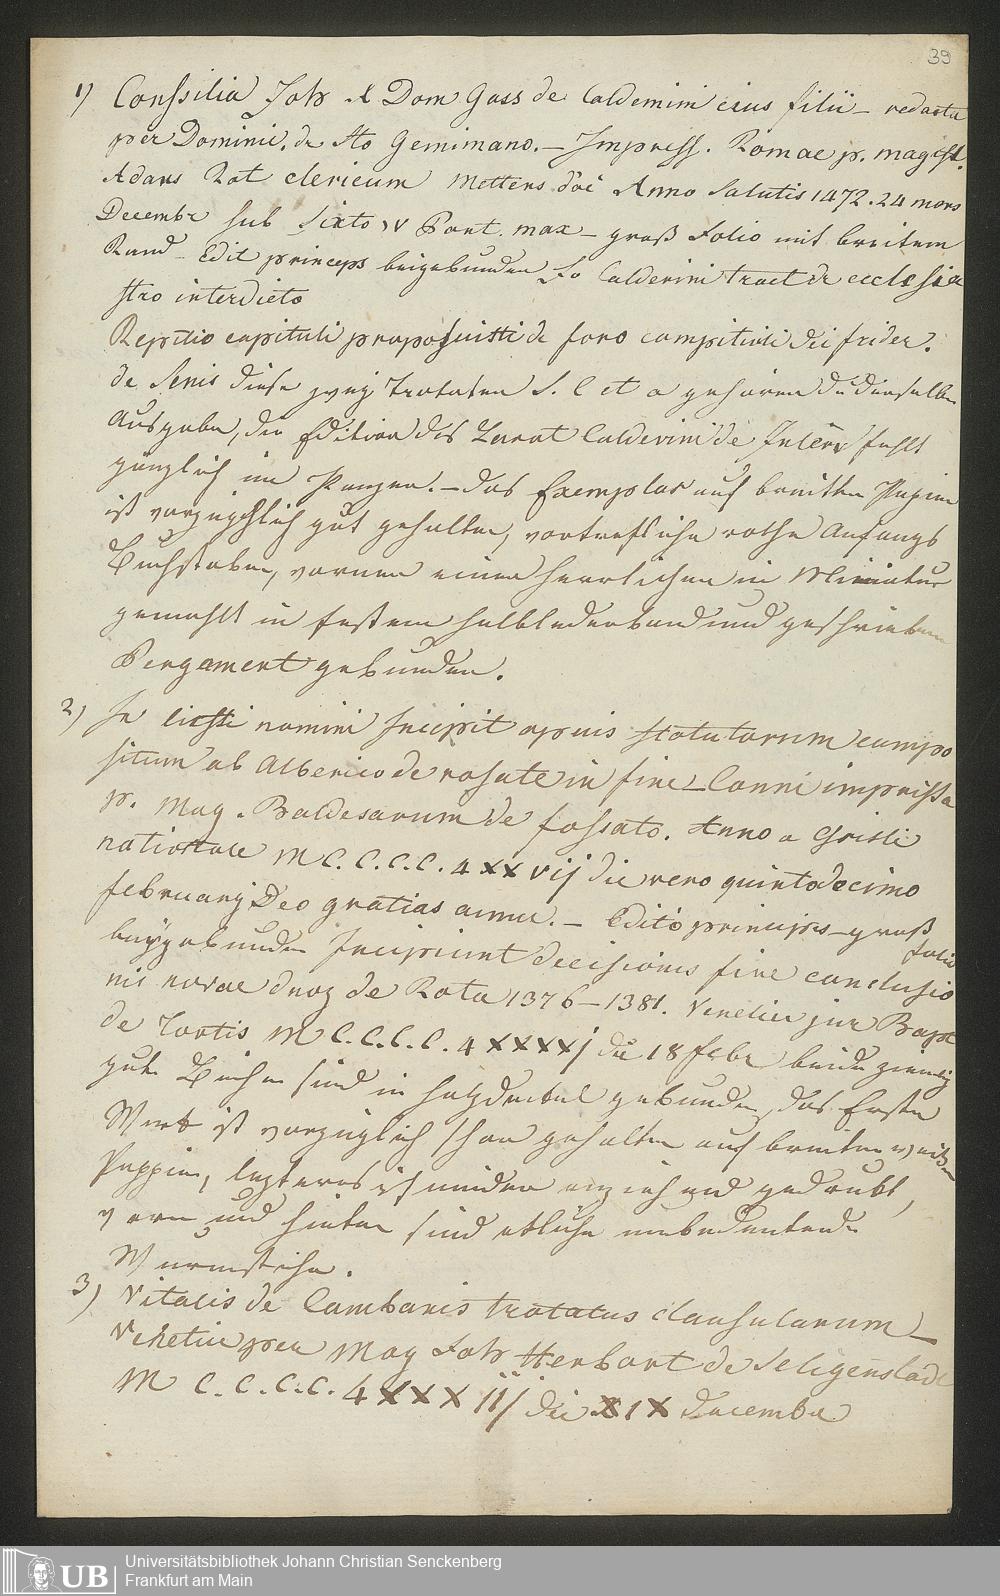 39
1) Conssilia Joh & Dom Gass de Caldemini eius filii – redacta
per Dominic. de Sto Gemimano. – Impress. Romae p. magist.
Adans Rot clericum Mettens doc Anno Salutis 1472. 24 mens
Decembr sub Sixto IV Pont. max – groß Folio mit breitem
Rand – Edit princeps beigebunden Jo Calderini tract de ecclesia
stro interdicto
Reptitio capituli proposuisti de foro compititi dei frider.
de Senis diese zwey Tractaten S. l et a gehören zu derselben
Ausgabe, die Edition des Tractat Calderini de Inter fehlt
gänzlich im Panzer. – das Exemplar auf breiten Papier
ist vorzüglich gut gehalten, vortrefliche rothe Anfangs
Buchstaben, vornen einen herrlichen in Miniatur
gemahlt in festem halblederband und geschrieben
Pergament gebunden.
2) In licsti nomini Incipit opuis statutorum compo
situm ab Alberico de rosate in fine – Conni impressa
p. Mag. Baldesarum de fossato. Anno a Christi
nativitate M C.C.C.C. 4 XX vij die vero quintodecimo
februarij Deo gratias amen. – Editio princips – groß
Folio
beygebunden Incipiunt decisiones sive conclusio
nis novae duoz de Rota 1376 – 1381. Venetiis per Bapt
de Tortis M C.C.C.C. 4 XXXXj die 18 febr beide ziemlig
gute Bücher sind in holzdeckel gebunden, das Erste
Werk ist vorzüglich schön gehalten auf breiten weißen
Pappier, lezteres ist minder anziehend gedruckt,
vorn und hinten sind etliche unbedeutende
Wurmstiche.
3) Vitalis de Cambanis tratatus clausularum –
Venetiis per Mag Joh Herbort de Seligenstadt
M C.C.C.C. 4 XXX iij die XIX Decembre
Universitätsbibliothek Johann Christian Senckenberg
Frankfurt am Main
UB